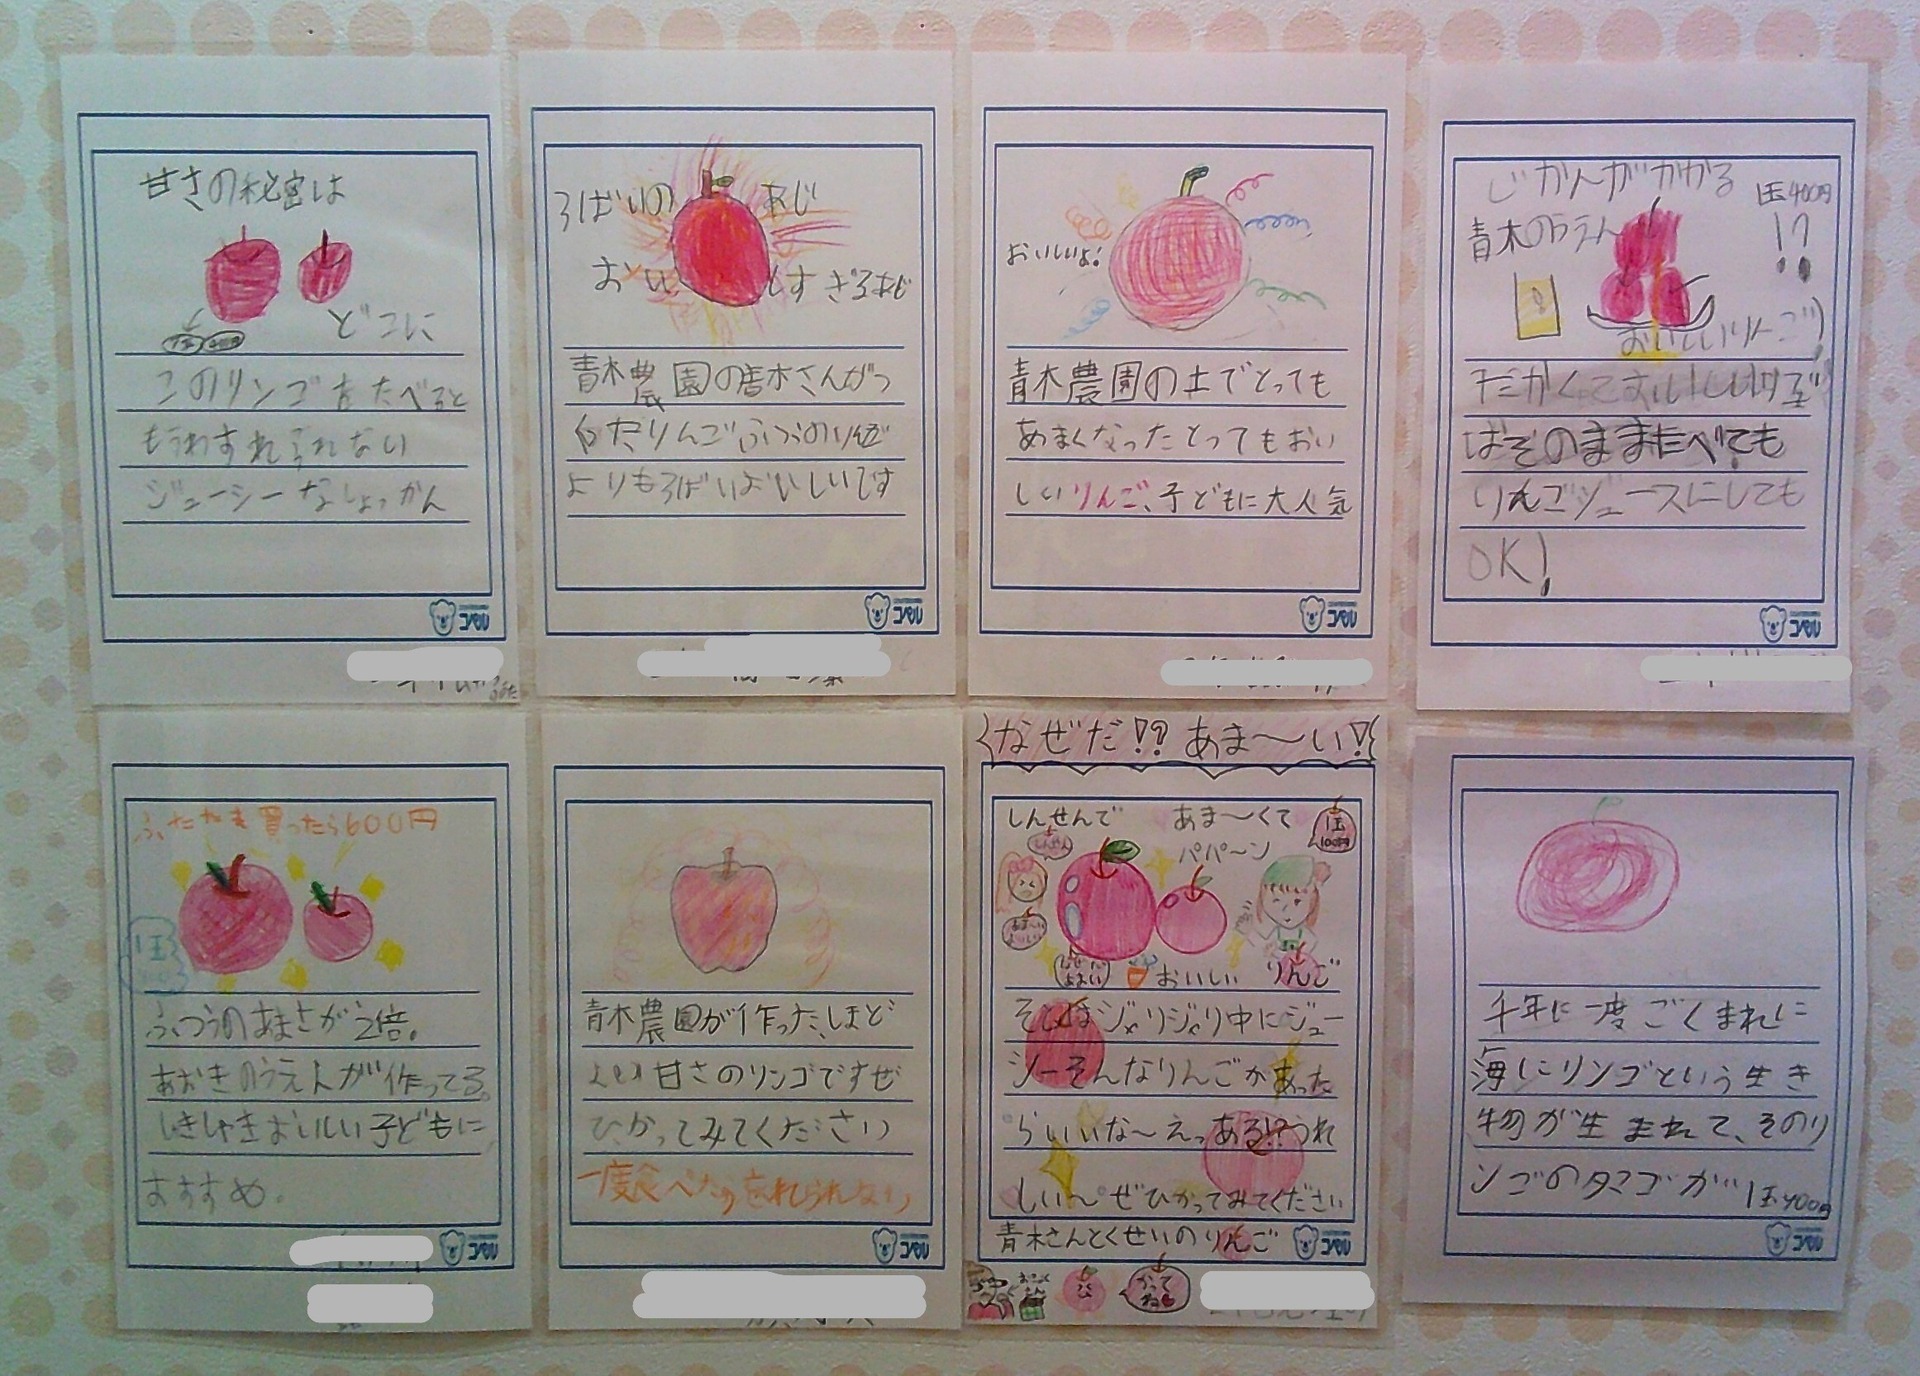 甘さの秘密は
どこに
このリンゴをたべると
もうわすれられない
ジューシーなしょっかん
コペル
3ばいの あじ
おいしすぎるあじ
青木農園の青木さんがつ
くったりんごふつうのりんご
よりも3ばいおいしいです
コペル
おいしいよ!
青木農園の土でとっても
あまくなったとってもおい
しいりんご、子どもに大人気
コペル
じかんがかかる
1玉400円
青木のうえん
!?
おいしいりんご
だかくておいしいけど
ばそのままたべても
りんごジュースにしても
OK!
コペル
ふたたま買ったら600円
1玉
ふつうのあまさが2倍。
あおきのうえんが作ってる。
しゃきしゃきおいしい子どもに
おすすめ。
コペル
青木農園が作った、ほど
よい甘さのリンゴですぜ
ひかってみてください
一度食べたら忘れられない
コペル
なぜだ!? あま〜い!
しんせんで
あま〜くて
パパ〜ン
1玉
100円
おいしい りんご
そとはジャリジャリ中にジュー
シーそんなりんごがあった
らいいな〜えっある!?うれ
しい〜ぜひかってみてください
青木さんとくせいのりんご
コペル
かって
ね
千年に一度ごくまれに
海にリンゴという生き
物が生まれて、そのり
ンゴのタマゴが 1玉400円
コペル